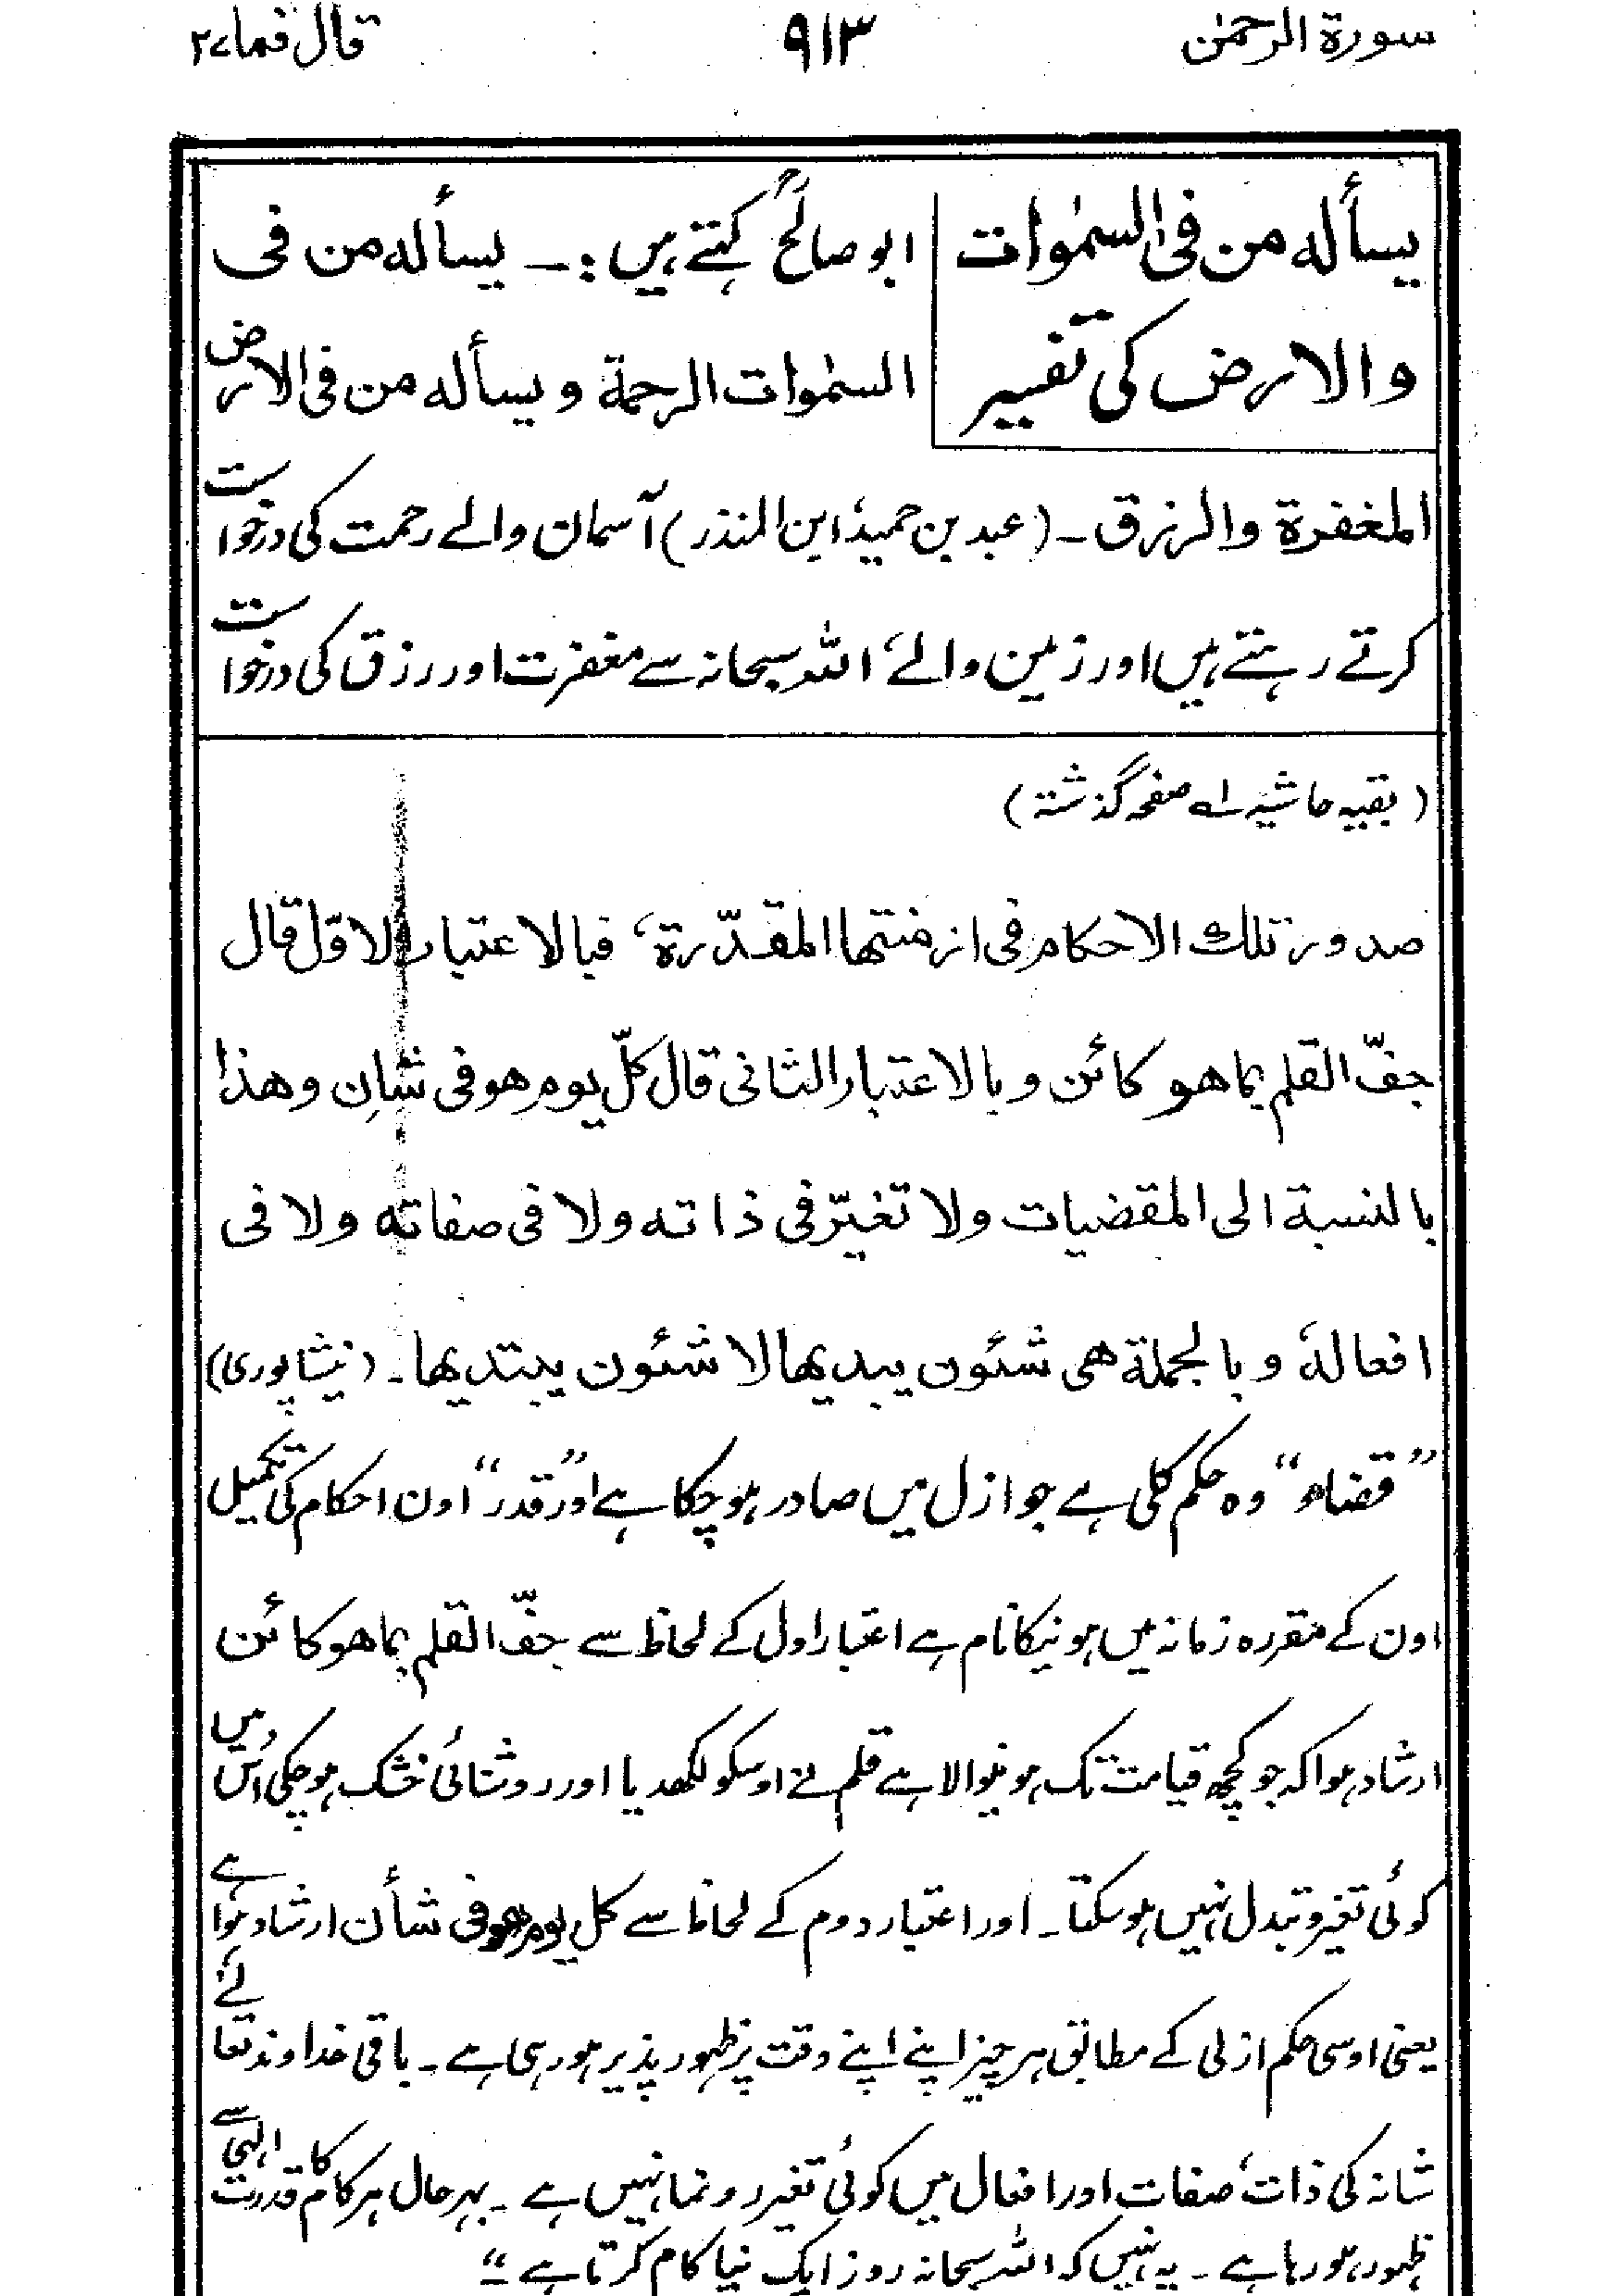 سورة الرحمٰن ۹۱۳ قال فما ۲۷
یسأله من فی السمٰوات
والارض کی تفسیر
ابو صالحؒ کہتے ہیں :۔ یسأله من فی
السمٰوات الرحمة و یسأله من فی الارض
المغفرة والرزق ۔ (عبد بن حمید، ابن المنذر) آسمان والے رحمت کی درخواست
کرتے رہتے ہیں اور زمین والے، اللہ سبحانہ سے مغفرت اور رزق کی درخواست
(بقیہ حاشیہ ۱؎ صفحہ گذشتہ)
صدور تلك الاحکام فی ازمنتها المقدّرة، فبالاعتبار الاوّل قال
جفّ القلم بما هو کائن و بالاعتبار الثانی قال کلّ یوم هو فی شان وهذا
بالنسبة الی المقضیات ولا تغیّر فی ذاته ولا فی صفاته ولا فی
افعاله، و بالجملة هی شئون یبدیها لا شئون یبتدیها ۔ (نیشاپوری)
”قضاء“ وہ حکم کلی ہے جو ازل میں صادر ہو چکا ہے اور ”قدر“ اون احکام کی تکمیل
اون کے مقررہ زمانہ میں ہونیکا نام ہے اعتبار اول کے لحاظ سے جفّ القلم بما هو کائن
ارشاد ہوا کہ جو کچھ قیامت تک ہونیوالا ہے قلم نے اوسکو لکھدیا اور روشنائی خشک ہو چکی اس میں
کوئی تغیر و تبدل نہیں ہو سکتا ۔ اور اعتبار دوم کے لحاظ سے کل یوم هو فی شأن ارشاد ہوا ہے
یعنی اوسی حکم ازلی کے مطابق ہر چیز اپنے اپنے وقت پر ظہور پذیر ہو رہی ہے ۔ باقی خداوند تعالےٰ
شانہ کی ذات، صفات اور افعال میں کوئی تغیر رونما نہیں ہے ۔ بہر حال ہر کام کا قدرت الہی سے
ظہور ہو رہا ہے ۔ یہ نہیں کہ اللہ سبحانہ روز ایک نیا کام کرتا ہے “